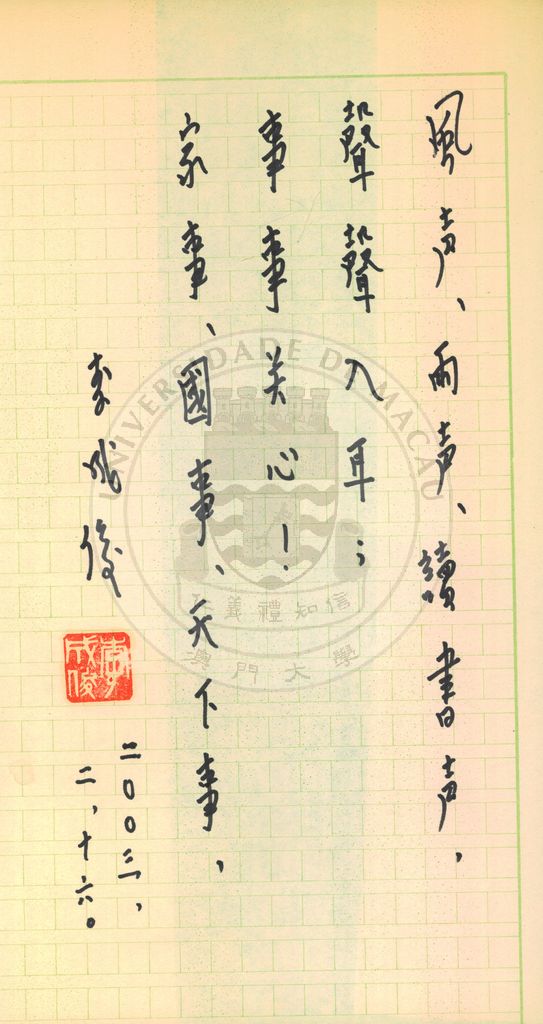 風声、雨声、讀書声，
聲聲入耳；
事事关心！
家事、國事、天下事，
李成俊
李成俊
二〇〇三、
二、十六。
UNIVERSIDADE DE MACAU
仁義禮知信
澳門大學